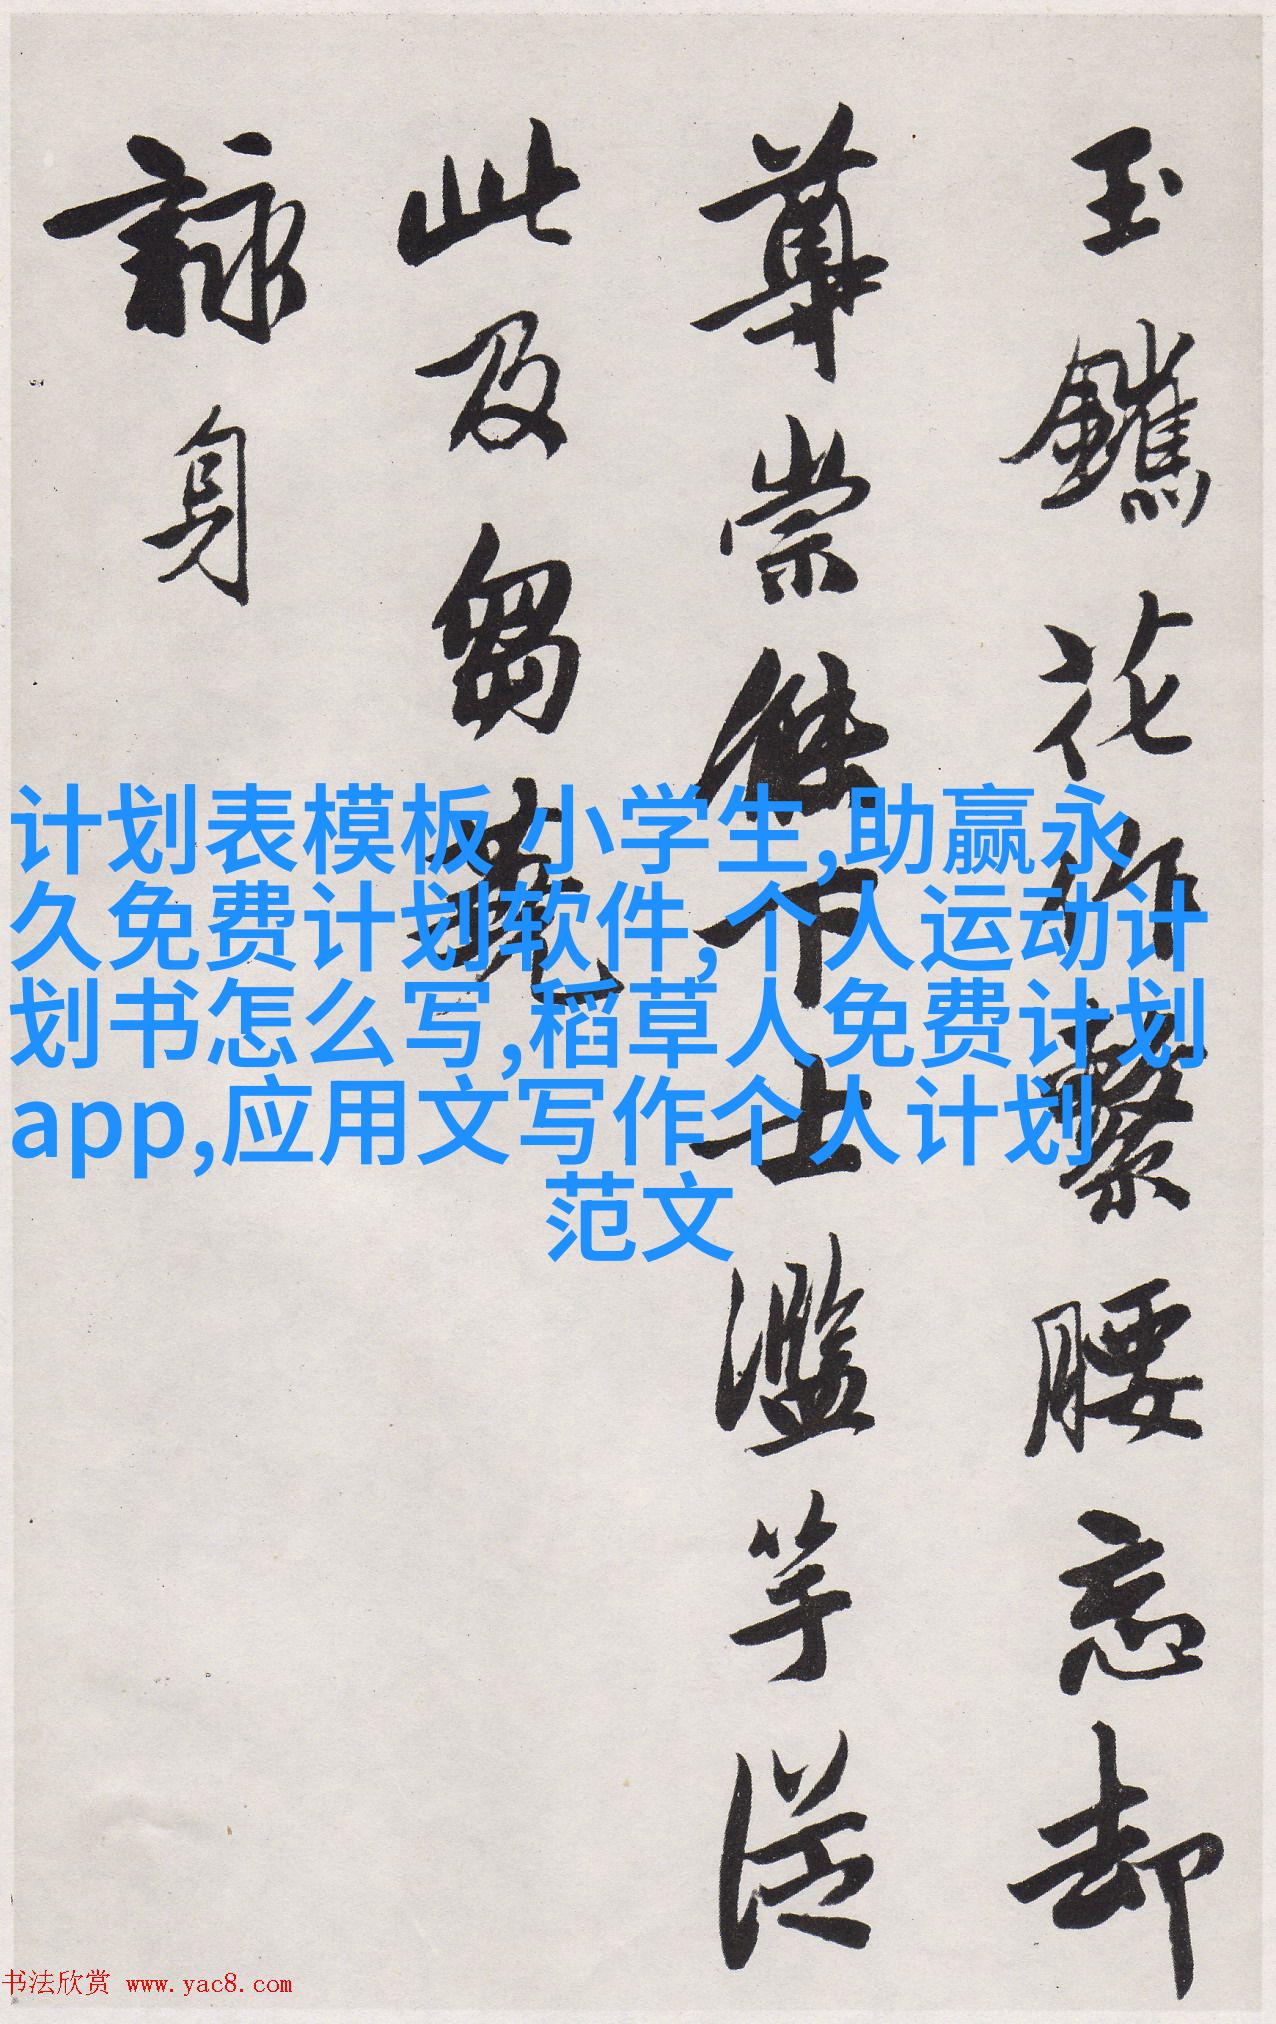 玉鑣花作繫腰忘却
尊崇傑下士濫竽從
此及芻蕘
詠身
计划表模板 小学生,助赢永
久免费计划软件,个人运动计
划书怎么写,稻草人免费计划
app,应用文写作个人计划
范文
书法欣赏 www.yac8.com